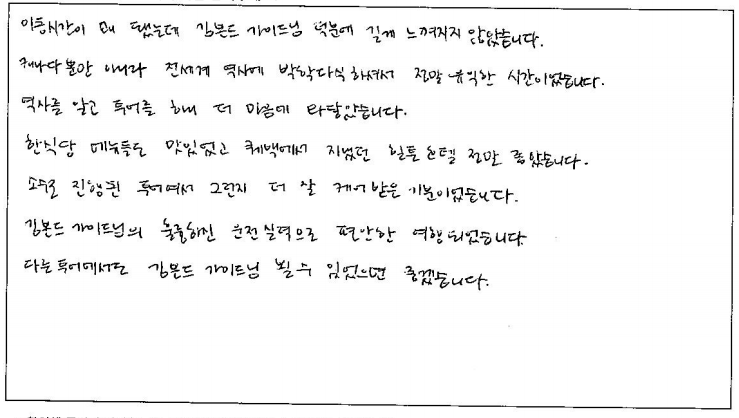 이동시간이 꽤 됐는데 김본드 가이드님 덕분에 길게 느껴지지 않았습니다.
캐나다뿐만 아니라 전세계 역사에 박학다식 하셔서 정말 유익한 시간이었습니다.
역사를 알고 투어를 하니 더 마음에 와닿았습니다.
한식당 메뉴들도 맛있었고 퀘백에서 지냈던 힐튼호텔 정말 좋았습니다.
소수로 진행된 투어여서 그런지 더 잘 케어받은 기분이었습니다.
김본드 가이드님의 출중하신 운전실력으로 편안한 여행 되었습니다
다음 투어에서도 김본드 가이드님 뵐 수 있었으면 좋겠습니다.